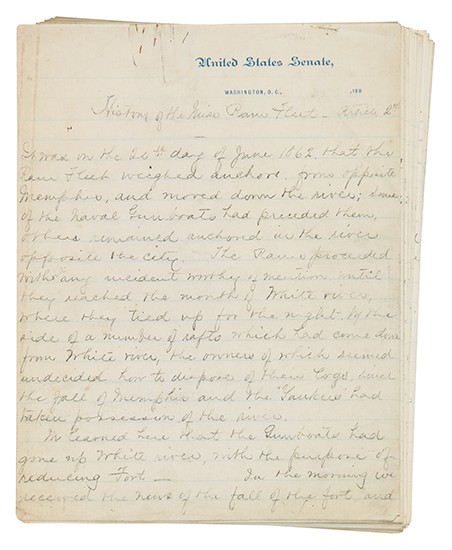 United States Senate,
WASHINGTON, D.C., 188
History of the Miss Ram Fleet — Article 2nd
It was on the 20th day of June 1862, that the
Ram Fleet weighed anchore, from opposite
Memphis, and moved down the river; some
of the Naval Gunboats had preceded them,
others remained anchored in the river
opposite the city. The Rams proceeded
without any incident worthy of mention until
they reached the mouth of White river,
where they tied up for the night by the
side of a number of rafts which had come down
from White river, the owners of which seemed
undecided how to dispose of their logs, since
the fall of Memphis and the Yankees had
taken possession of the river.
We learned here that the Gunboats had
gone up White river, with the purpose of
reducing Fort — In the morning we
received the news of the fall of the fort, and